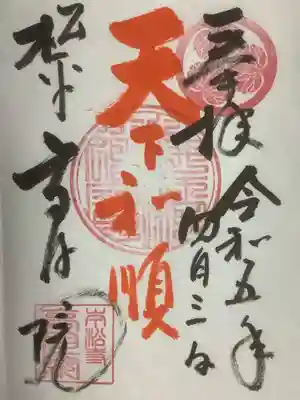 奉拝
令和五年
四月三日
天下和順
松平
高月院